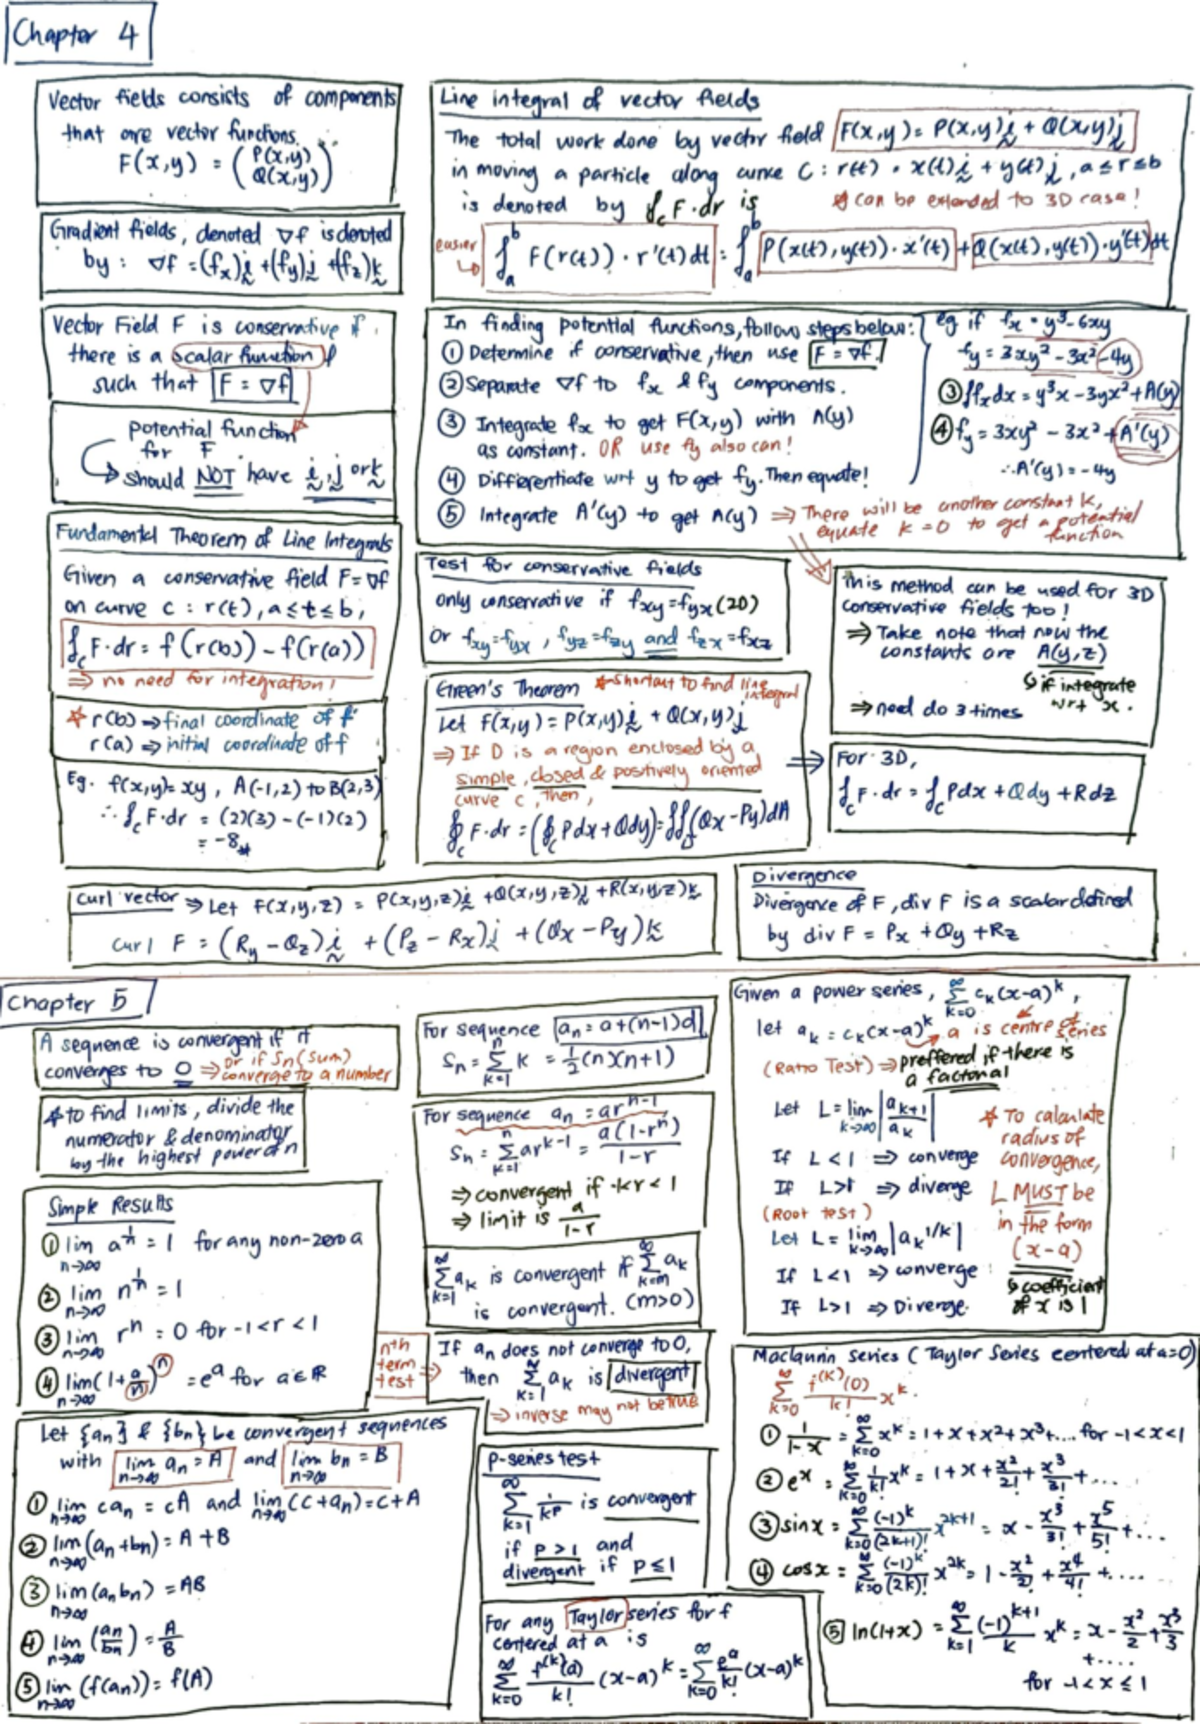 Chapter 4
Vector fields consists of components
that are vector functions.
F(x,y) = (P(x,y) Q(x,y))
Gradient fields, denoted ∇f is denoted
by : ∇f = (fx)i + (fy)j + (fz)k
Vector Field F is conservative if
there is a scalar function f
such that F = ∇f
potential function
for F
↳ should NOT have i, j or k
Fundamental Theorem of Line Integrals
Given a conservative field F = ∇f
on curve C : r(t), a ≤ t ≤ b,
∫c F·dr = f(r(b)) - f(r(a))
⇒ no need for integration!
* r(b) ⇒ final coordinate of f
r(a) ⇒ initial coordinate of f
Eg. f(x,y) = xy , A(-1,2) to B(2,3)
∴ ∫c F·dr = (2)(3) - (-1)(2)
= -8#
Line integral of vector fields
The total work done by vector field F(x,y) = P(x,y)i + Q(x,y)j
in moving a particle along curve C : r(t) = x(t)i + y(t)j, a ≤ r ≤ b
is denoted by ∫c F·dr is
* can be extended to 3D case!
easier ↳ ∫_a^b F(r(t)) · r'(t)dt = ∫_a^b P(x(t),y(t))·x'(t) + Q(x(t),y(t))·y'(t)dt
In finding potential functions, follow steps below:
① Determine if conservative, then use F = ∇f.
② Separate ∇f to fx & fy components.
③ Integrate fx to get F(x,y) with A(y)
as constant. OR use fy also can!
④ Differentiate wrt y to get fy. Then equate!
⑤ Integrate A'(y) to get A(y) ⇒ There will be another constant k,
equate k = 0 to get a potential
function
eg if fx = y³ - 6xy
fy = 3xy² - 3x² - 4y
③ ∫fx dx = y³x - 3yx² + A(y)
④ fy = 3xy² - 3x² + A'(y)
∴ A'(y) = -4y
Test for conservative fields
only conservative if fxy = fyx (2D)
or fxy = fyx , fyz = fzy and fzx = fxz
This method can be used for 3D
conservative fields too!
⇒ Take note that now the
constants are A(y,z)
↳ if integrate
wrt x.
⇒ need do 3 times
Green's Theorem * Shortcut to find line
integral
Let F(x,y) = P(x,y)i + Q(x,y)j
⇒ If D is a region enclosed by a
simple, closed & positively oriented
curve C, then,
∮c F·dr = (∮c Pdx + Qdy) = ∬D (Qx - Py)dA
⇒ For 3D,
∫c F·dr = ∫c Pdx + Qdy + Rdz
Curl vector ⇒ Let F(x,y,z) = P(x,y,z)i + Q(x,y,z)j + R(x,y,z)k
curl F = (Ry - Qz)i + (Pz - Rx)j + (Qx - Py)k
Divergence
Divergence of F, div F is a scalar defined
by div F = Px + Qy + Rz
Chapter 5
A sequence is convergent if it
converges to 0 ⇒ or if Sn (sum)
converge to a number
* to find limits, divide the
numerator & denominator
by the highest power of n
Simple Results
① lim n→∞ a^(1/n) = 1 for any non-zero a
② lim n→∞ n^(1/n) = 1
③ lim n→∞ r^n = 0 for -1 < r < 1
④ lim n→∞ (1 + a/n)^n = e^a for a ∈ R
Let {an} & {bn} be convergent sequences
with lim n→∞ an = A and lim n→∞ bn = B
① lim n→∞ can = cA and lim n→∞ (c + an) = c + A
② lim n→∞ (an + bn) = A + B
③ lim n→∞ (an bn) = AB
④ lim n→∞ (an/bn) = A/B
⑤ lim n→∞ (f(an)) = f(A)
For sequence an = a + (n-1)d
Sn = Σ_{k=1}^n k = ½(n)(n+1)
For sequence an = ar^(n-1)
Sn = Σ_{k=1}^n ar^(k-1) = a(1-r^n)/(1-r)
⇒ convergent if -1<r < 1
⇒ limit is a/(1-r)
Σ_{k=1}^∞ ak is convergent if Σ_{k=m}^∞ ak
is convergent. (m>0)
nth
term
test ⇒
If an does not converge to 0,
then Σ_{k=1}^∞ ak is divergent
⇒ inverse may not be true
P-series test
Σ_{k=1}^∞ 1/k^p is convergent
if P > 1 and
divergent if P ≤ 1
For any Taylor series for f
centered at a is
Σ_{k=0}^∞ f^(k)(a)/k! (x-a)^k = Σ_{k=0}^∞ e^a/k! (x-a)^k
Given a power series, Σ_{k=0}^∞ ck(x-a)^k,
let ak = ck(x-a)^k a is centre of
series
(Ratio Test) ⇒ preffered if there is
a factorial
Let L = lim k→∞ |ak+1/ak|
If L < 1 ⇒ converge
If L > 1 ⇒ diverge
(Root test)
Let L = lim k→∞ |ak^(1/k)|
If L < 1 ⇒ converge
If L > 1 ⇒ Diverge.
* To calculate
radius of
convergence,
L MUST be
in the form
(x-a)
↳ coefficient
of x is 1
Maclaurin Series (Taylor Series centered at a=0)
Σ_{k=0}^∞ f^(k)(0)/k! x^k
① 1/(1-x) = Σ_{k=0}^∞ x^k = 1 + x + x² + x³ + .... for -1 < x < 1
② e^x = Σ_{k=0}^∞ 1/k! x^k = 1 + x + x²/2! + x³/3! + ....
③ sin x = Σ_{k=0}^∞ (-1)^k/(2k+1)! x^(2k+1) = x - x³/3! + x⁵/5! + ....
④ cos x = Σ_{k=0}^∞ (-1)^k/(2k)! x^(2k) = 1 - x²/2! + x⁴/4! + ....
⑤ ln(1+x) = Σ_{k=1}^∞ (-1)^(k+1)/k x^k = x - x²/2 + x³/3
+ ....
for -1 < x ≤ 1